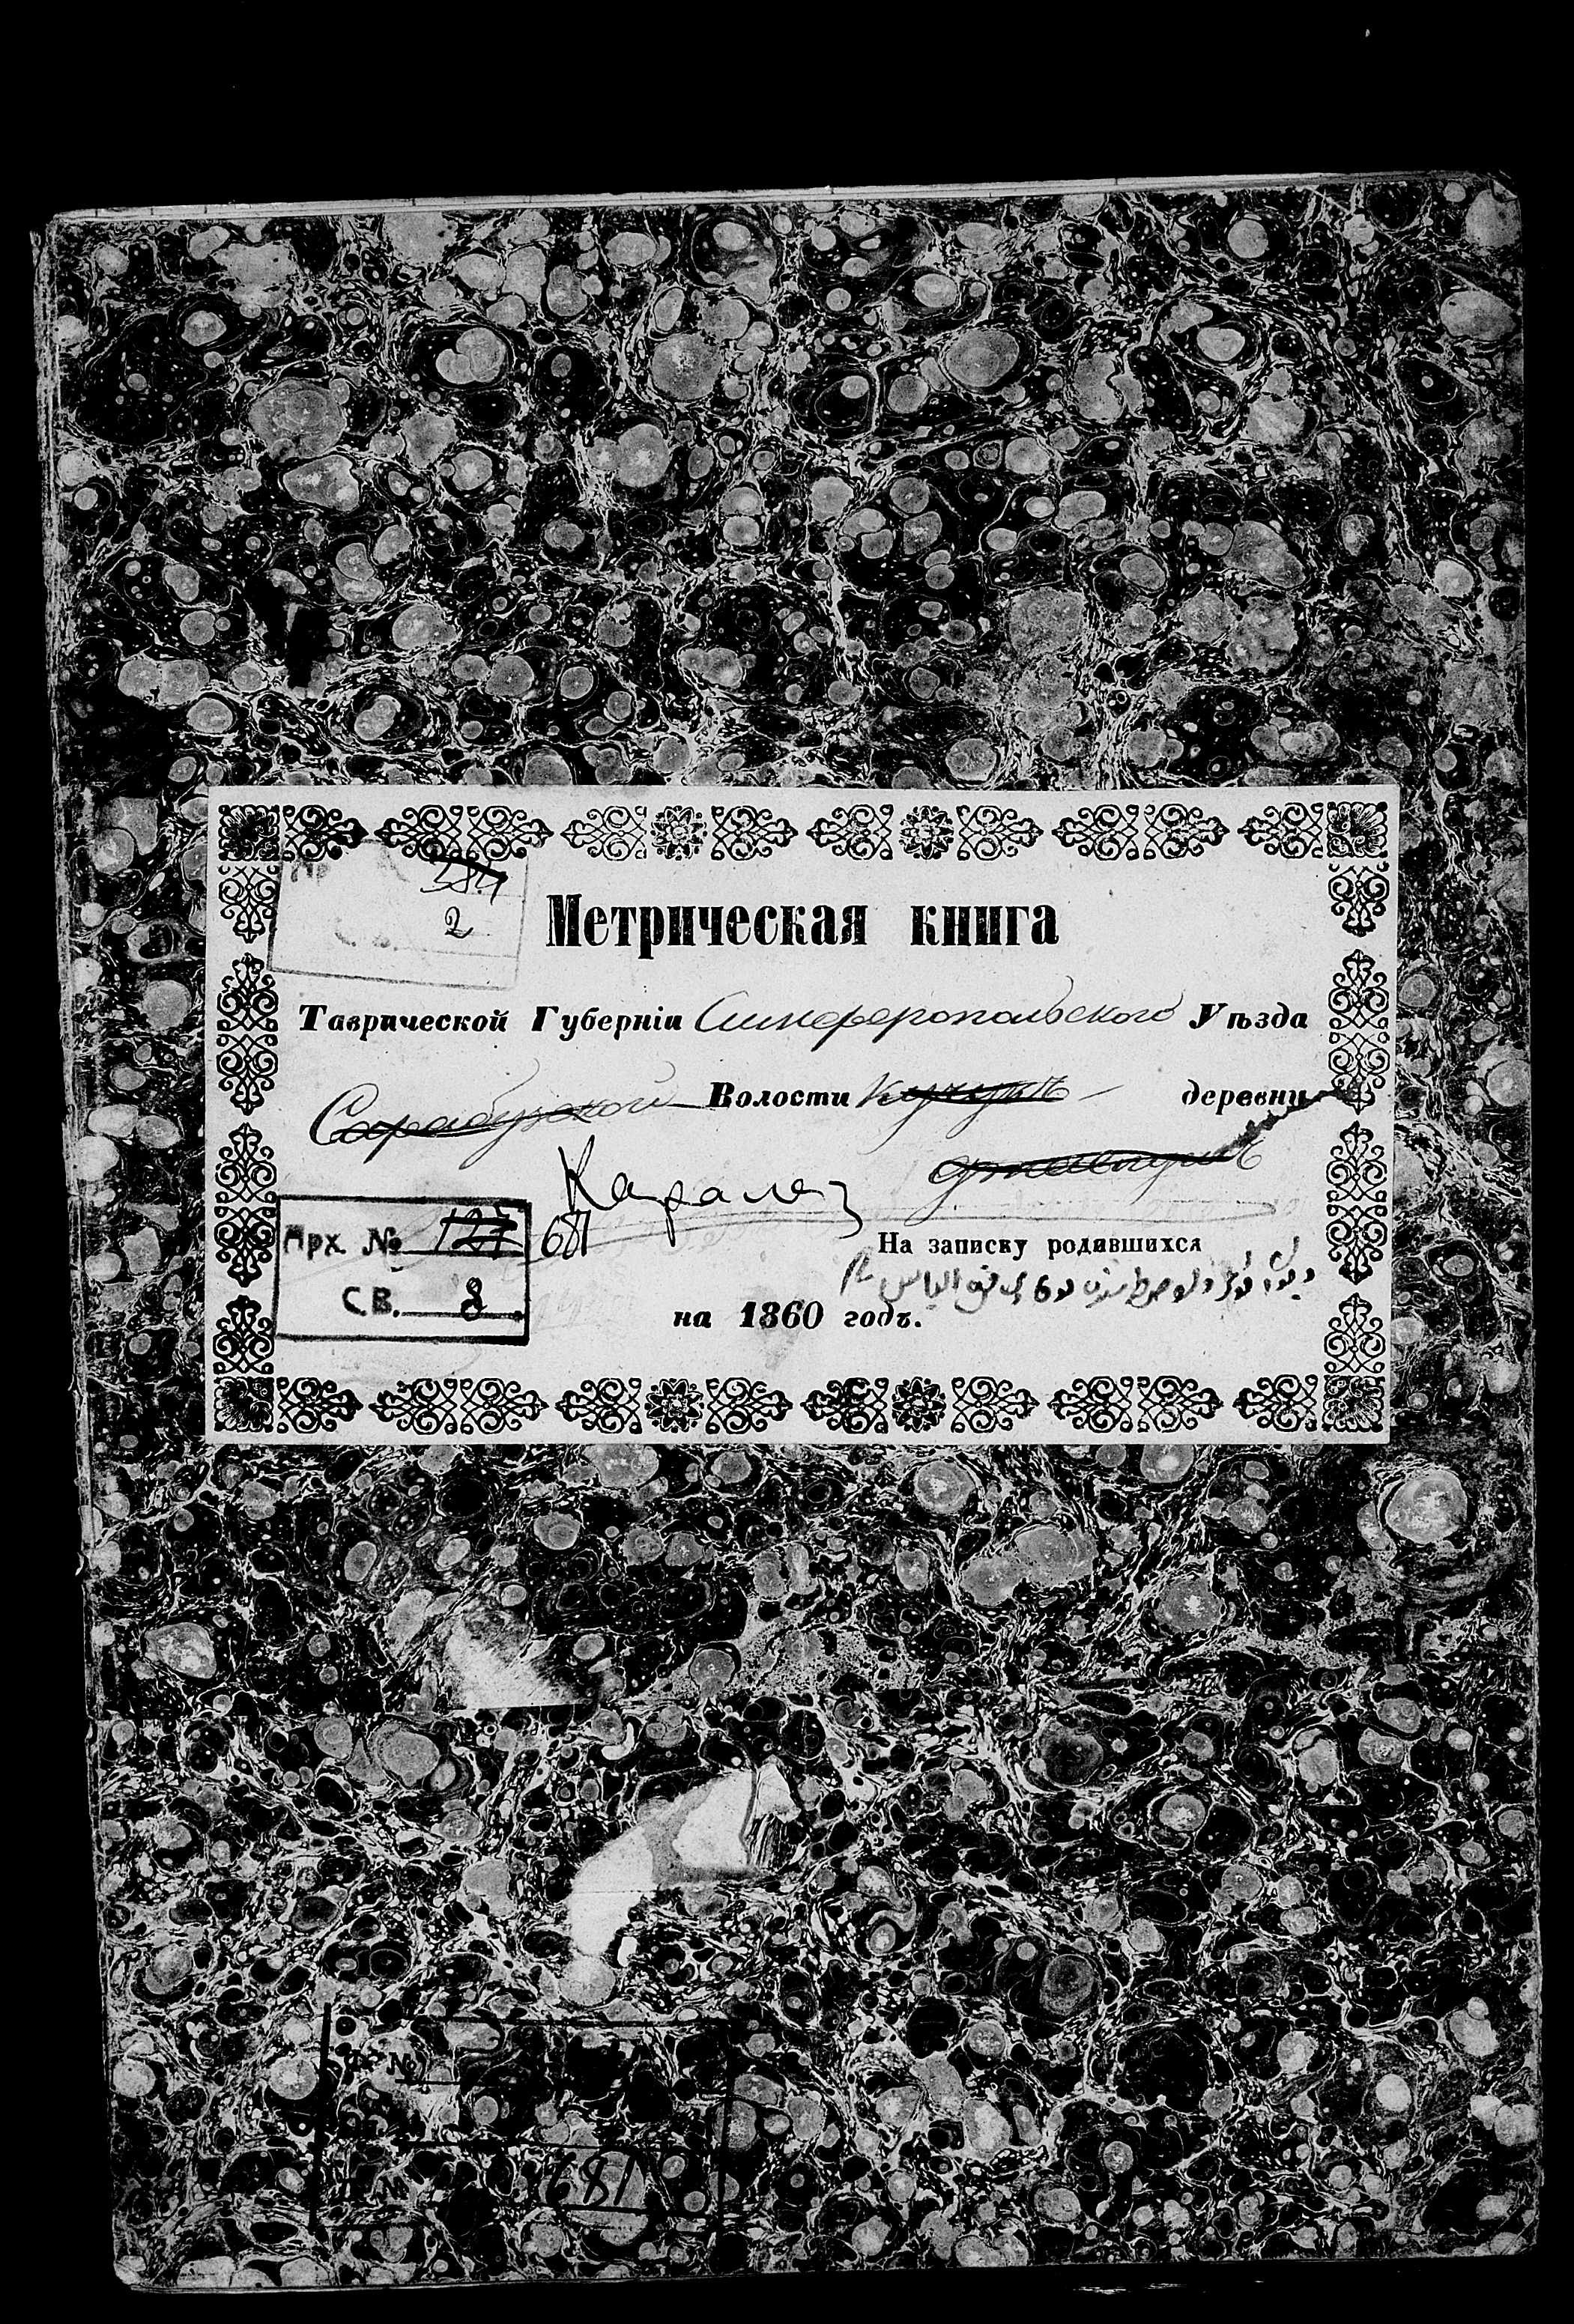 384
2
Метрическая книга
Таврической Губерніи Симферопольского Уѣзда
Сарабузской Волости Кучукъ деревни
Каралез
Арх. № 127 681
На записку родившихся
Св. 8
на 1860 годъ.
№
681